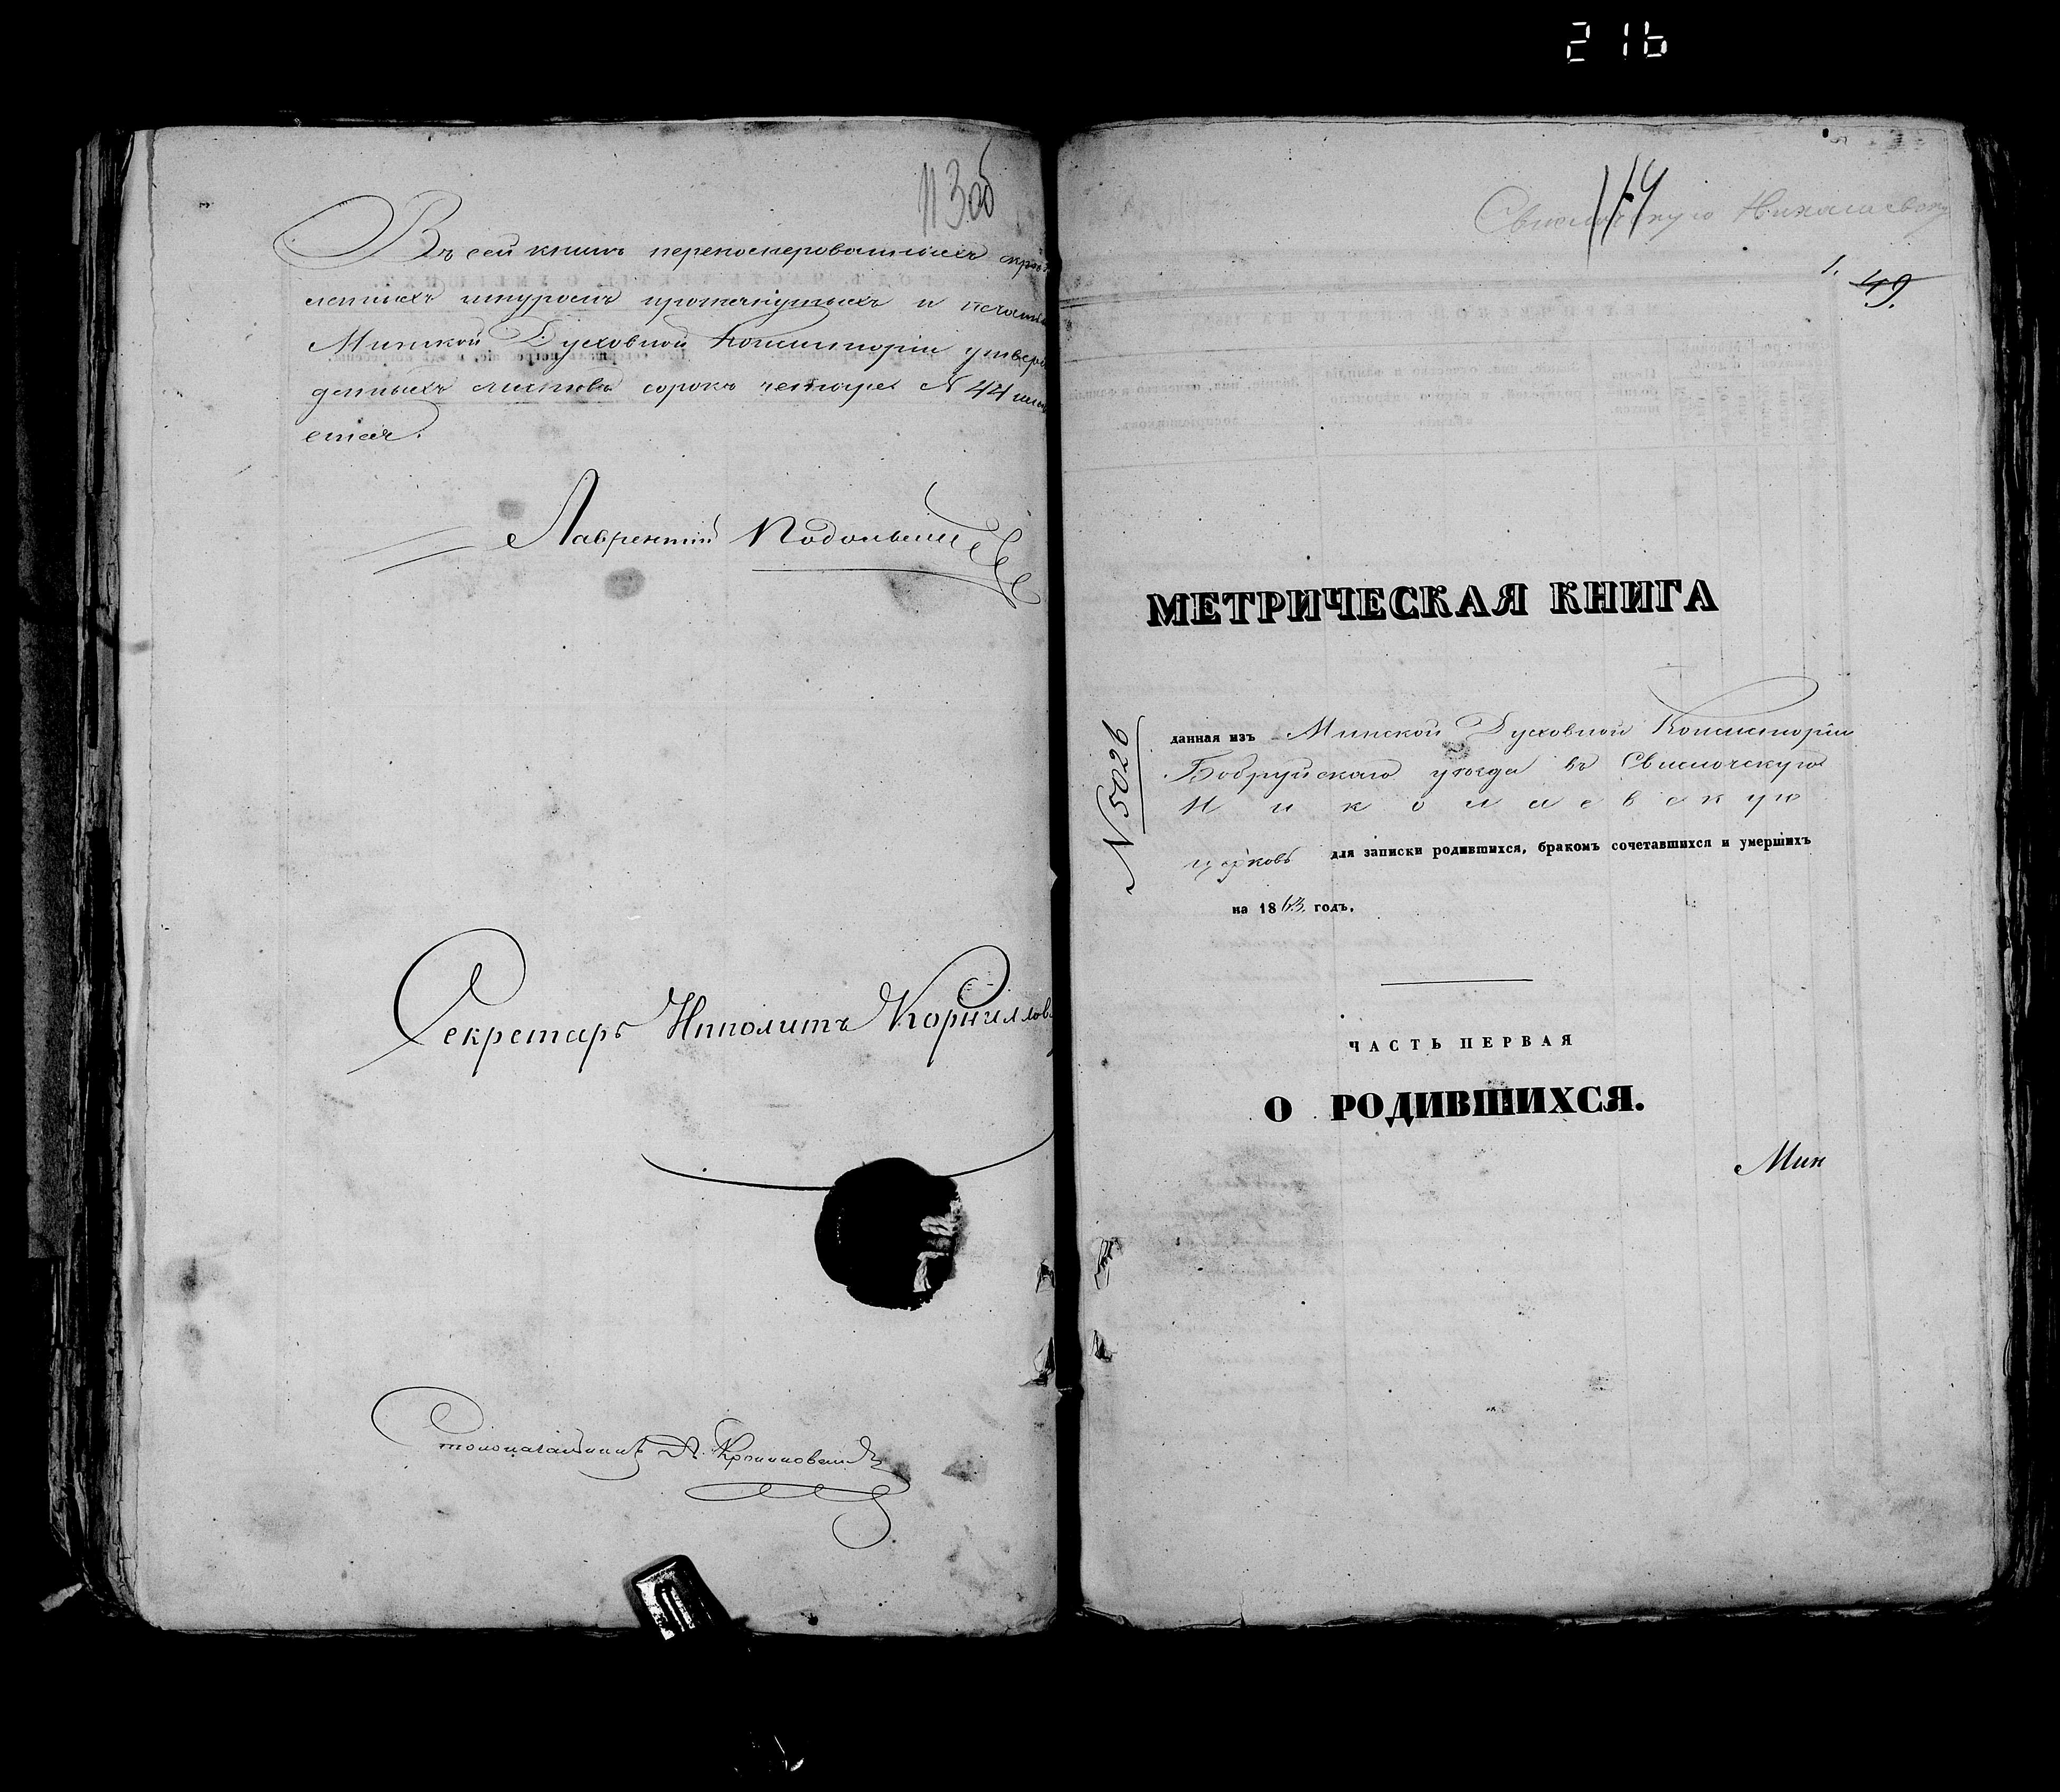 216
113 об
Въ сей книгѣ перенумерованныхъ скрѣп
ленныхъ шнуромъ протянутыхъ и печатью
Минской Духовной Консисторіи утверж
денныхъ листовъ сорокъ четыре № 44 имѣ
ется.
Лаврентій
Секретарь Ипполитъ Корнилло
Столоначальникъ
114
Свислочскую Николаевскую
1.
49.
МЕТРИЧЕСКАЯ КНИГА
N 5026
данная изъ Минской Духовной Консисторіи
Бобруйскаго уѣзда въ Свислочскую
Николаевскую
церковь для записки родившихся, бракомъ сочетавшихся и умершихъ
на 1863. годъ.
ЧАСТЬ ПЕРВАЯ
О РОДИВШИХСЯ.
Мин